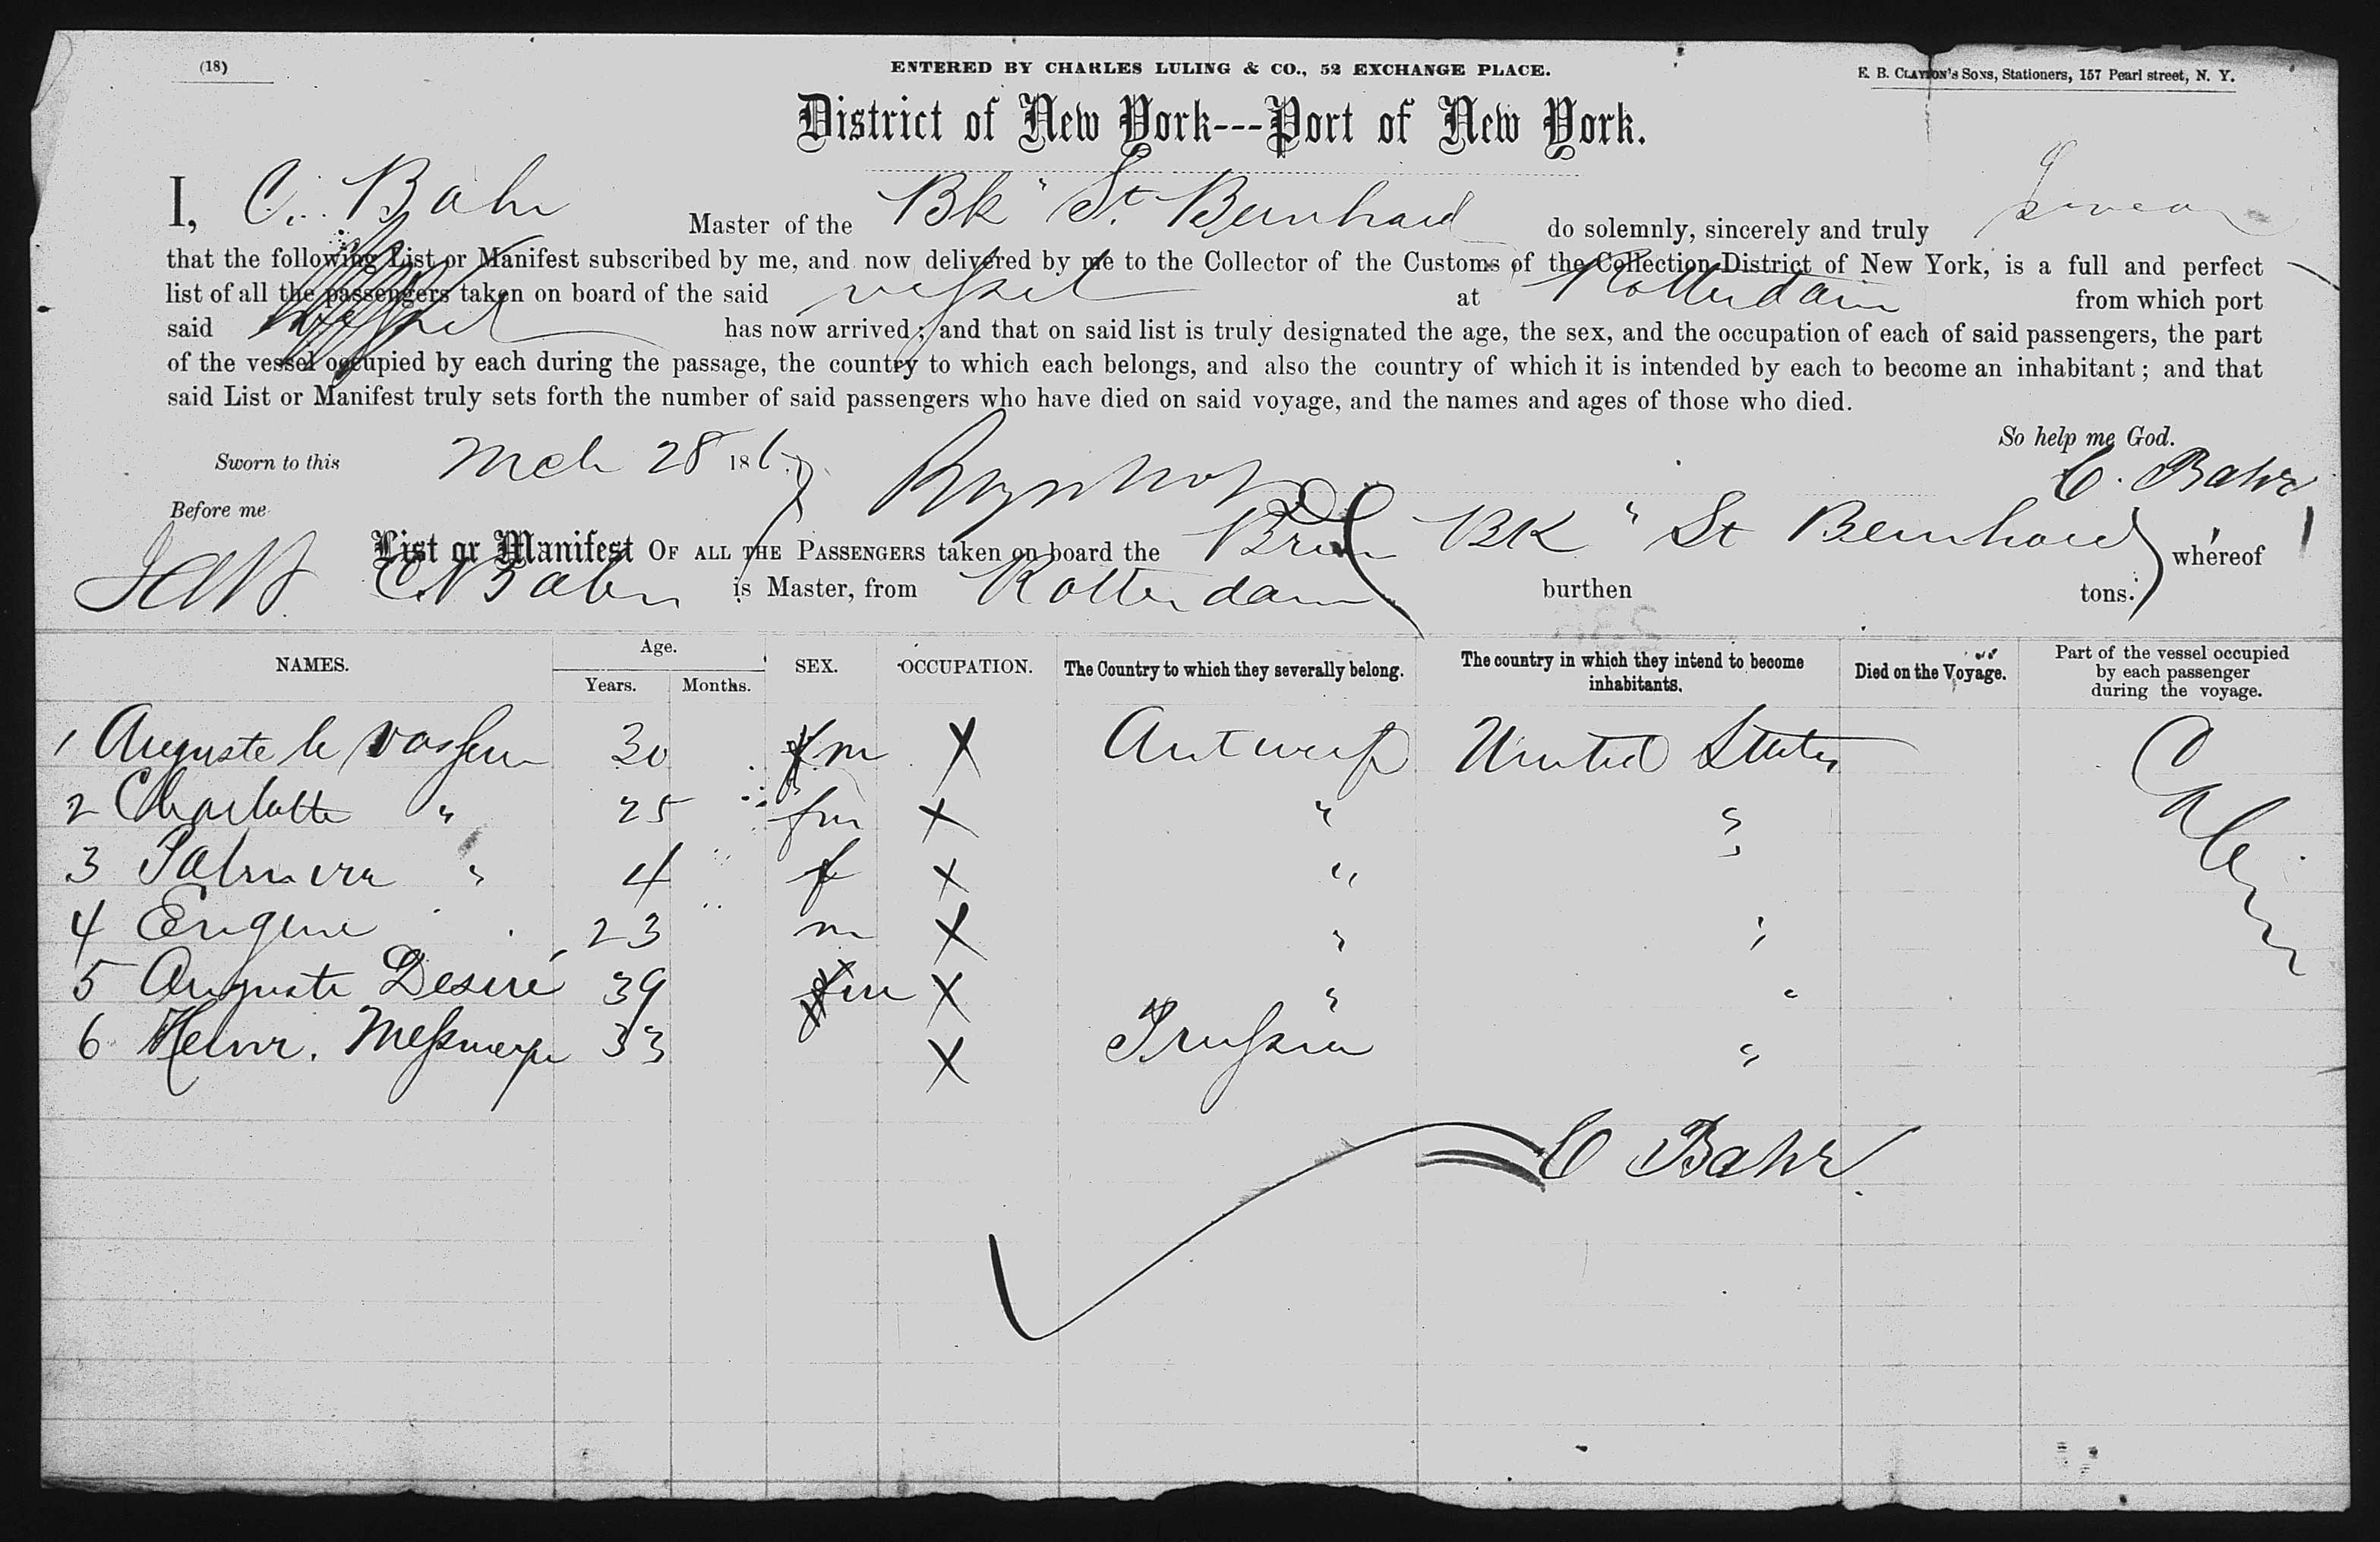 (18)
ENTERED BY CHARLES LULING & CO., 52 EXCHANGE PLACE.
E. B. CLAYTON'S SONS, Stationers, 157 Pearl street, N. Y.
District of New York---Port of New York.
I, C. Bahr Master of the Bk "St. Bernhard do solemnly, sincerely and truly swear
that the following List or Manifest subscribed by me, and now delivered by me to the Collector of the Customs of the Collection District of New York, is a full and perfect
list of all the passengers taken on board of the said vessel at Rotterdam from which port
said vessel has now arrived; and that on said list is truly designated the age, the sex, and the occupation of each of said passengers, the part
of the vessel occupied by each during the passage, the country to which each belongs, and also the country of which it is intended by each to become an inhabitant; and that
said List or Manifest truly sets forth the number of said passengers who have died on said voyage, and the names and ages of those who died.
So help me God.
Sworn to this Mch 28 186
C. Bahr
Before me
List or Manifest OF ALL THE PASSENGERS taken on board the Brem BK "St Bernhard whereof
C. Bahr is Master, from Rotterdam burthen tons.
NAMES. Age. Years. Months. SEX. OCCUPATION. The Country to which they severally belong. The country in which they intend to become inhabitants. Died on the Voyage. Part of the vessel occupied by each passenger during the voyage.
1 Auguste le 30 m X Antwerp United States Cabin
2 Charlotte " 25 fm X " "
3 Palmira " 4 f X " "
4 Eugene 23 m X " "
5 Auguste Desiré 39 m X " "
6 Heinr. 33 X Prussia "
C Bahr